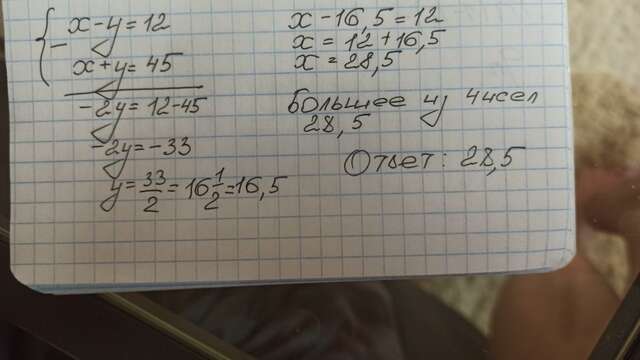 x-y=12
-
x+y=45
-2y=12-45
-2y=-33
y=33/2=16 1/2=16,5
x-16,5=12
x=12+16,5
x=28,5
Большее из чисел
28,5
Ответ: 28,5